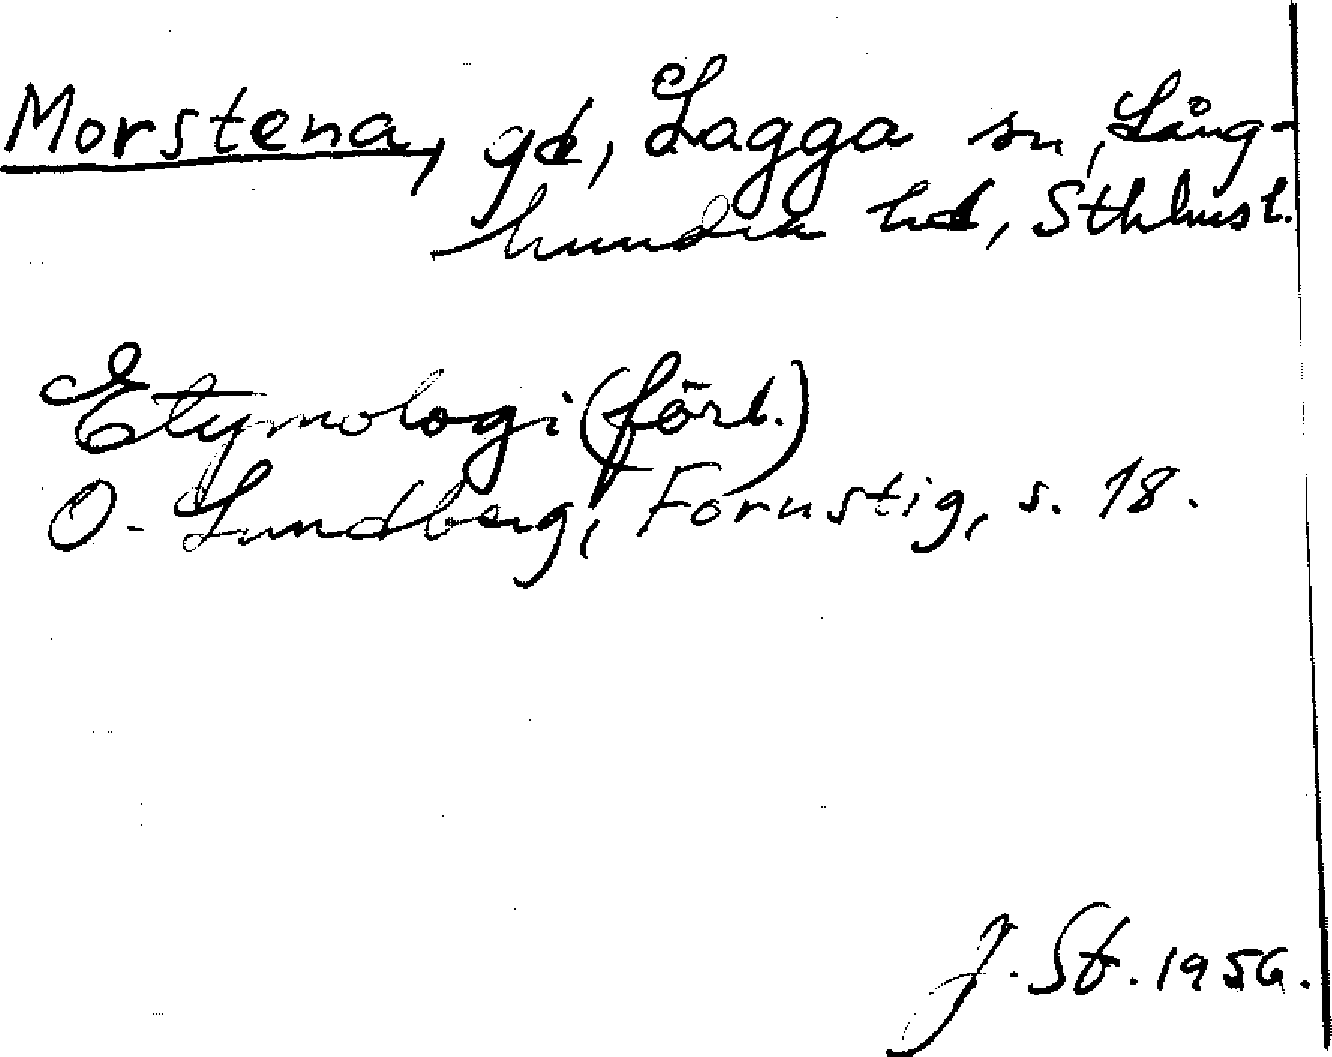 Morstena, gd, Lagga sn, Lång-
hundra hd, Sthlms l.
Etymologi (förl.)
O. Lundberg, Fornstig, s. 18.
J. St. 1956.